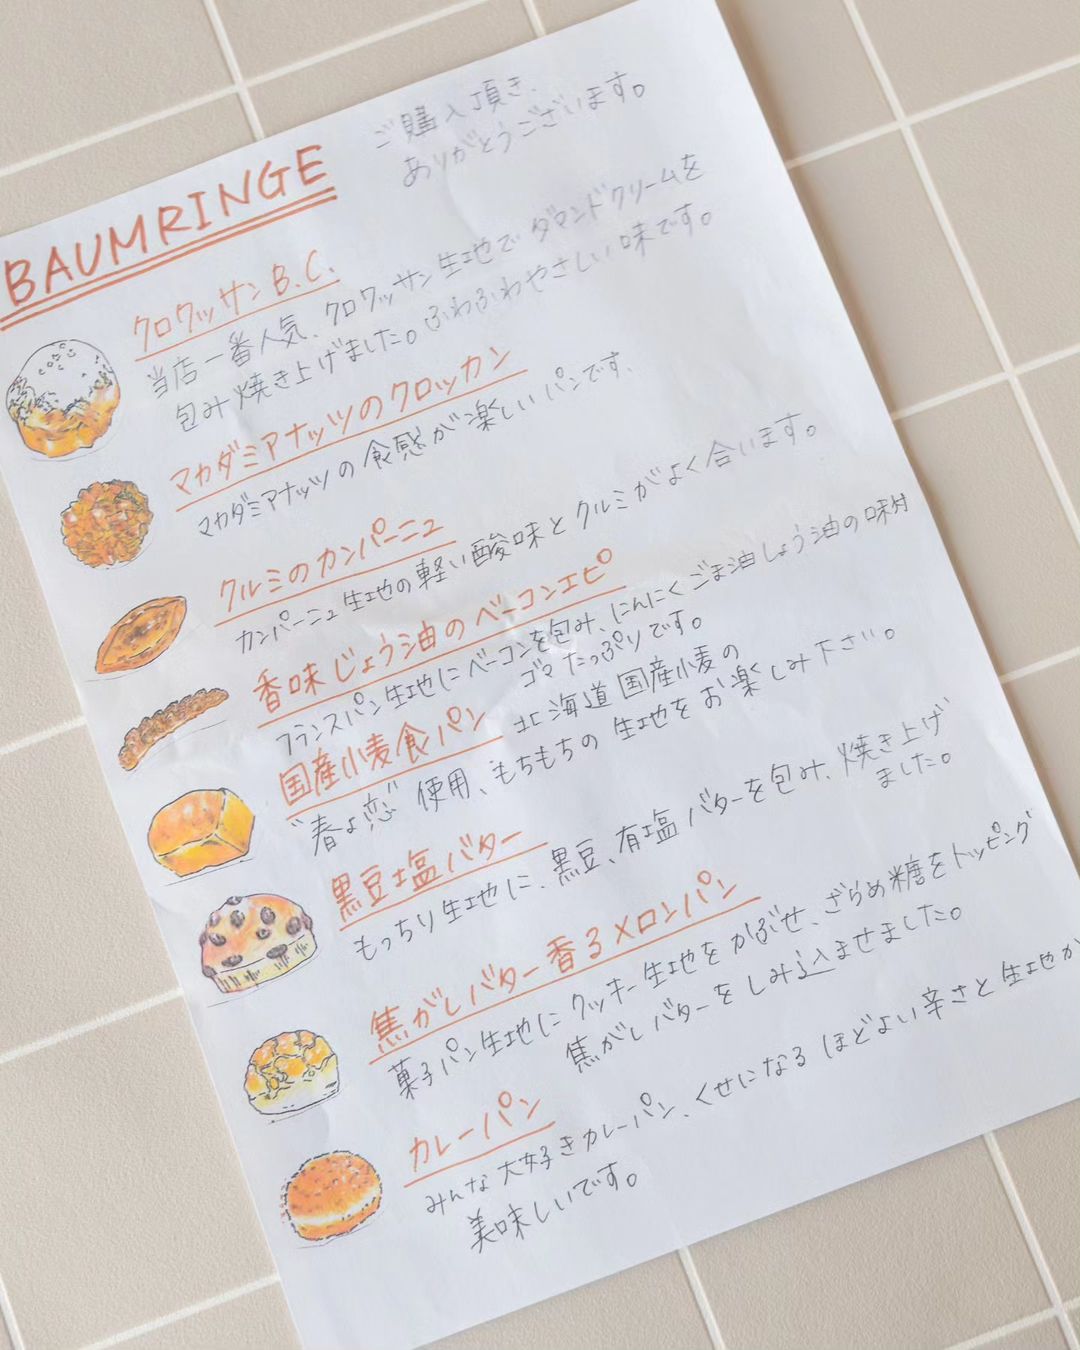 ご購入頂き、
ありがとうございます。
BAUMRINGE
クロワッサンB.C.
当店一番人気、クロワッサン生地でダマンドクリームを
包み焼き上げました。ふわふわやさしい味です。
マカダミアナッツのクロッカン
マカダミアナッツの食感が楽しいパンです、
クルミのカンパーニュ
カンパーニュ生地の軽い酸味とクルミがよく合います。
香味じょう油のベーコンエピ
フランスパン生地にベーコンを包み、にんにくごま油しょう油の味付
ゴマたっぷりです。
国産小麦食パン 北海道国産小麦の
"春よ恋"使用、もちもちの生地をお楽しみ下さい。
黒豆塩バター
もっちり生地に、黒豆、有塩バターを包み、焼き上げ
ました。
焦がしバター香るメロンパン
菓子パン生地にクッキー生地をかぶせ、ざらめ糖をトッピング
焦がしバターをしみ込ませました。
カレーパン
みんな大好きカレーパン、くせになるほどよい辛さと生地が
美味しいです。